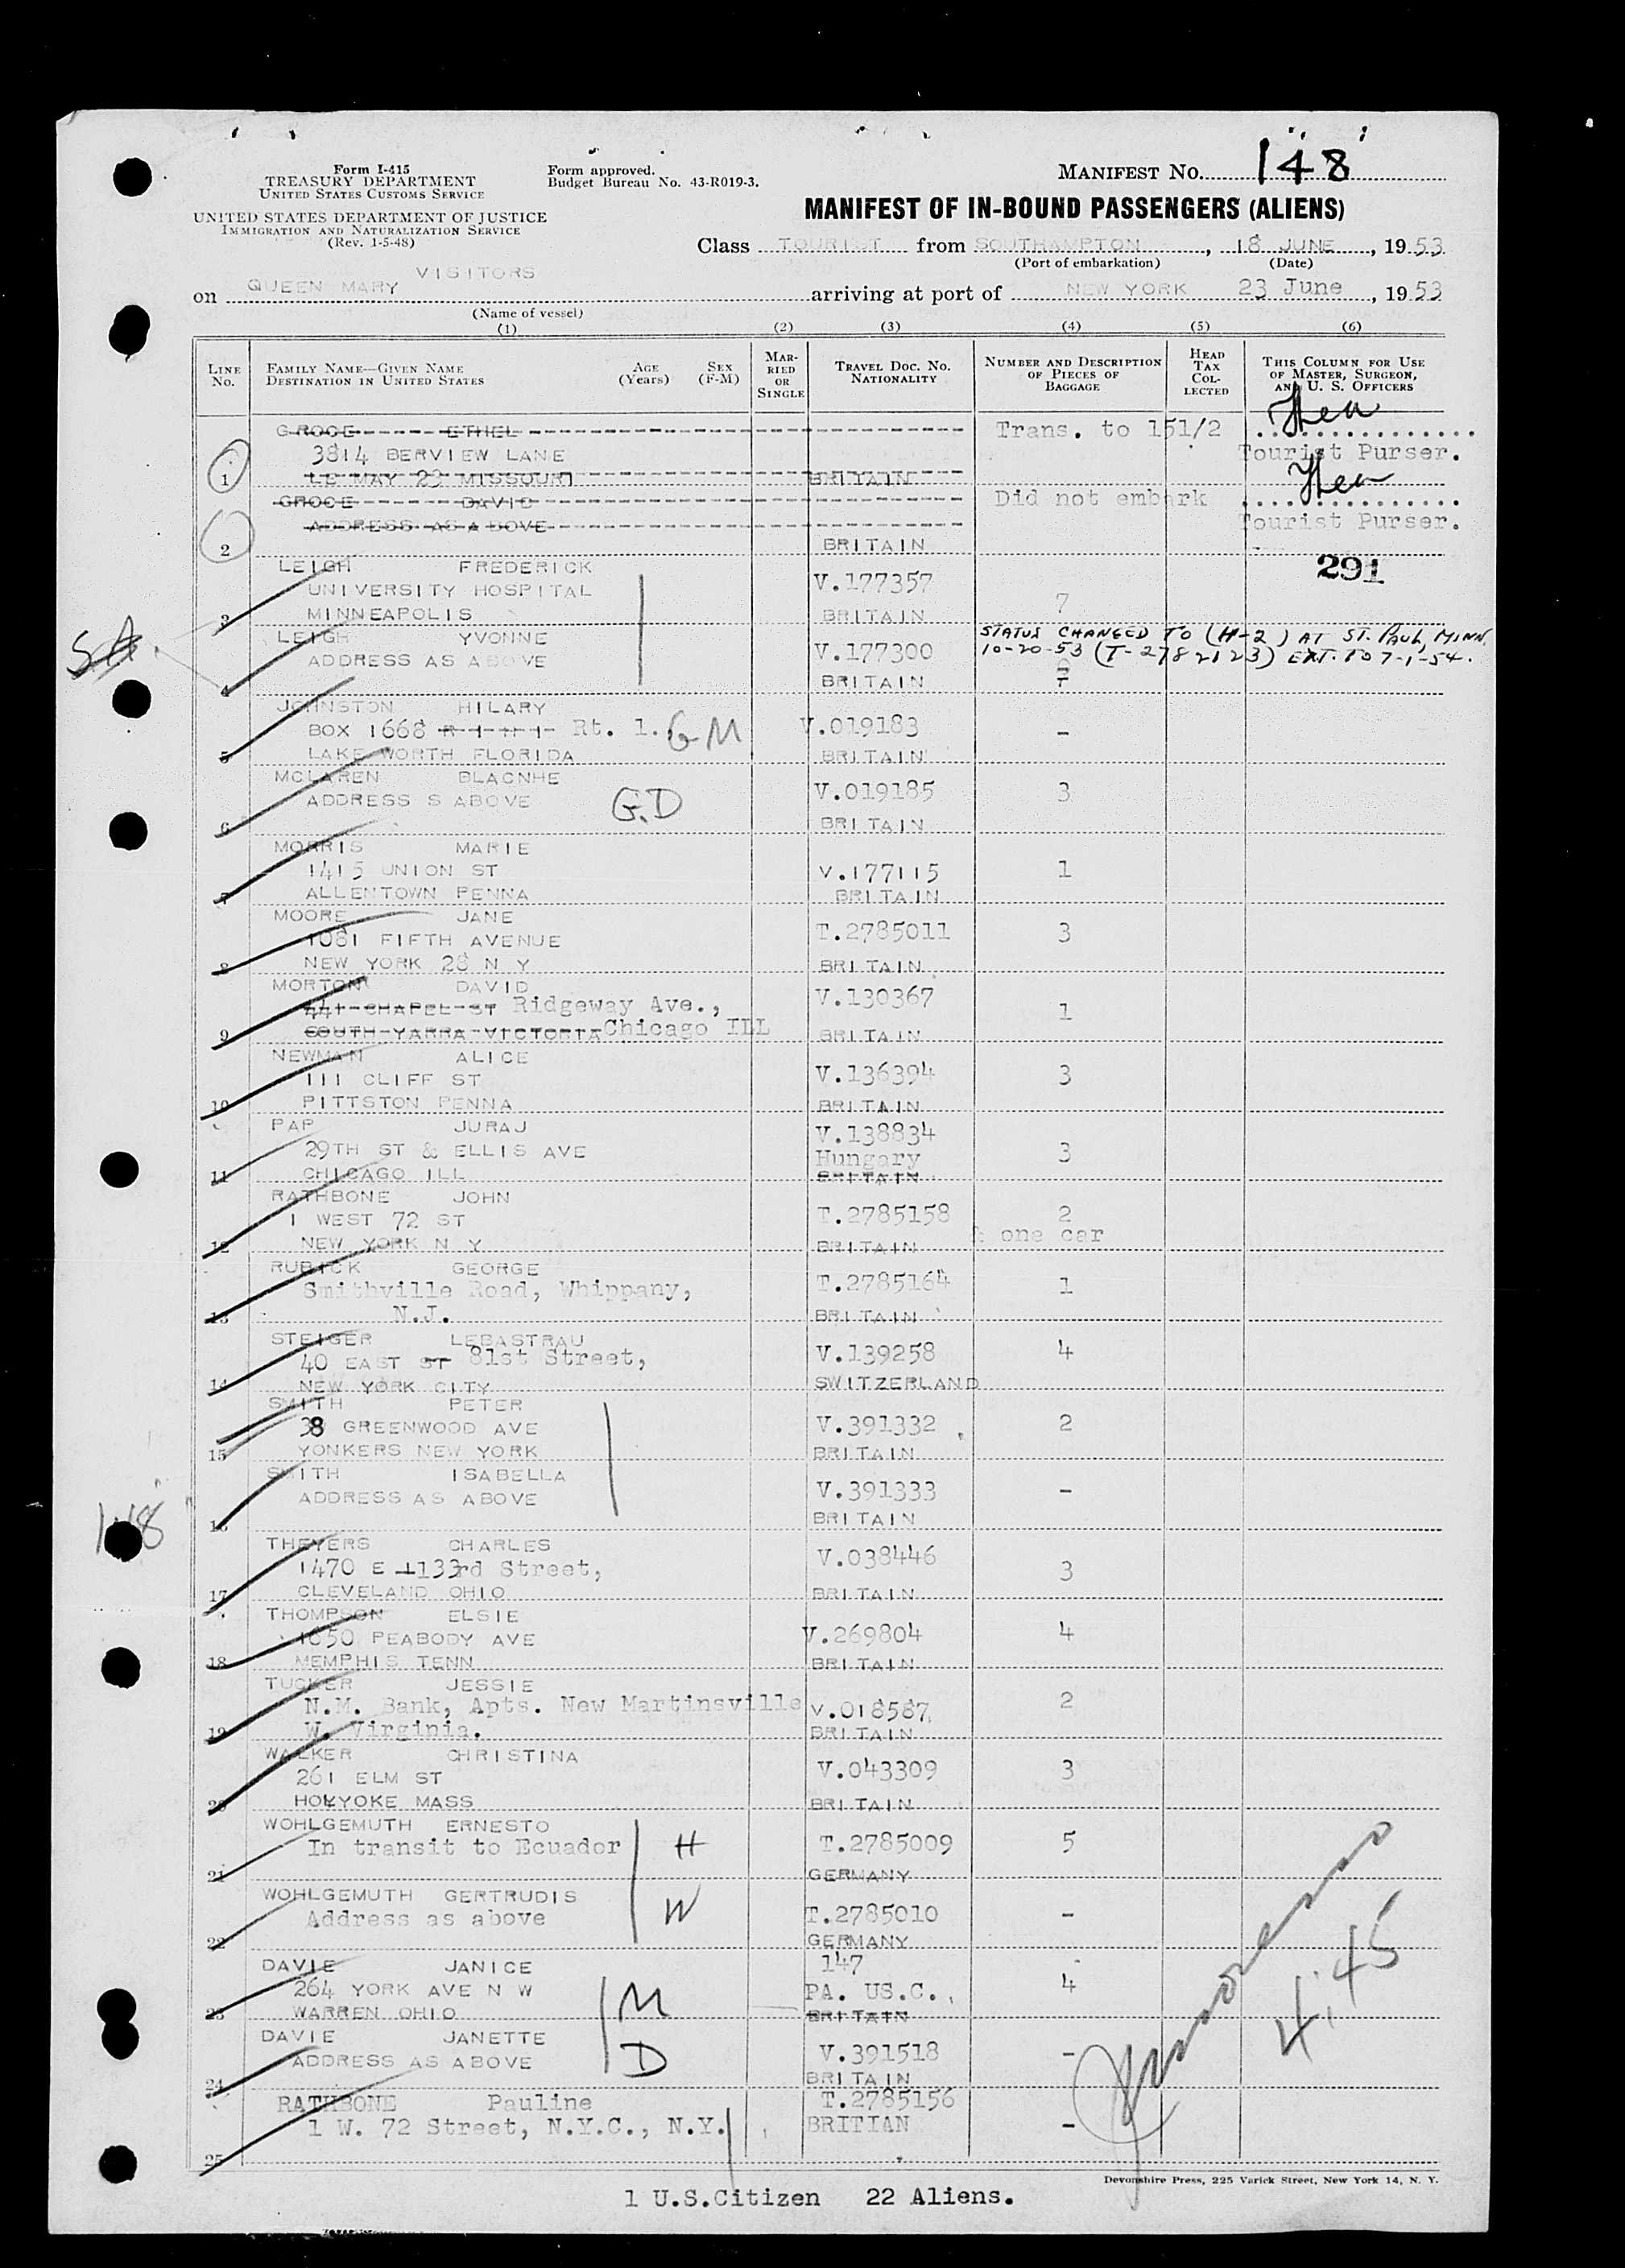 Form I-415
TREASURY DEPARTMENT
UNITED STATES CUSTOMS SERVICE
UNITED STATES DEPARTMENT OF JUSTICE
IMMIGRATION AND NATURALIZATION SERVICE
(Rev. 1-5-48)
Form approved.
Budget Bureau No. 43-R019-3.
MANIFEST NO. 148
MANIFEST OF IN-BOUND PASSENGERS (ALIENS)
Class TOURIST from SOUTHAMPTON, 18 JUNE, 1953
(Port of embarkation) (Date)
VISITORS
on QUEEN MARY arriving at port of NEW YORK 23 June, 1953
(Name of vessel)
(1) (2) (3) (4) (5) (6)
LINE NO. FAMILY NAME—GIVEN NAME DESTINATION IN UNITED STATES AGE (Years) SEX (F-M) MARRIED OR SINGLE TRAVEL DOC. NO. NATIONALITY NUMBER AND DESCRIPTION OF PIECES OF BAGGAGE HEAD TAX COLLECTED THIS COLUMN FOR USE OF MASTER, SURGEON, AND U. S. OFFICERS
GROCE ETHEL Trans. to 151/2
3814 BERVIEW LANE Tourist Purser.
1 LE MAY 23 MISSOURI BRITAIN
GROCE DAVID Did not embark
ADDRESS AS A BOVE Tourist Purser.
2 BRITAIN
291
LEIGH FREDERICK V.177357
UNIVERSITY HOSPITAL 7
3 MINNEAPOLIS BRITAIN
SA.
LEIGH YVONNE V.177300 STATUS CHANGED TO (H-2) AT ST. PAUL, MINN.
ADDRESS AS ABOVE 10-20-53 (T-2782123) EXT. TO 7-1-54.
4 BRITAIN
JOHNSTON HILARY V.019183
BOX 1668 Rt. 1. GM -
5 LAKE WORTH FLORIDA BRITAIN
MCLAREN BLACNHE V.019185 3
ADDRESS S ABOVE G.D
6 BRITAIN
MORRIS MARIE
1415 UNION ST V.177115 1
7 ALLENTOWN PENNA BRITAIN
MOORE JANE T.2785011 3
1081 FIFTH AVENUE
8 NEW YORK 28 N Y BRITAIN
MORTON DAVID V.130367
441 CHAPEL ST Ridgeway Ave., 1
9 SOUTH YARRA VICTORIA Chicago ILL BRITAIN
NEWMAN ALICE V.136394 3
111 CLIFF ST
10 PITTSTON PENNA BRITAIN
PAP JURAJ V.138834
29TH ST & ELLIS AVE Hungary 3
11 CHICAGO ILL BRITAIN
RATHBONE JOHN T.2785158 2
1 WEST 72 ST & one car
12 NEW YORK N Y BRITAIN
RUBICK GEORGE T.2785164 1
Smithville Road, Whippany,
13 N.J. BRITAIN
STEIGER LEBASTRAU V.139258 4
40 EAST ST 81st Street,
14 NEW YORK CITY SWITZERLAND
SMITH PETER V.391332 2
38 GREENWOOD AVE
15 YONKERS NEW YORK BRITAIN
SMITH ISABELLA V.391333 -
ADDRESS AS ABOVE
16 BRITAIN
148
THEYERS CHARLES V.038446
1470 E 133rd Street, 3
17 CLEVELAND OHIO BRITAIN
THOMPSON ELSIE V.269804 4
1650 PEABODY AVE
18 MEMPHIS TENN BRITAIN
TUCKER JESSIE 2
N.M. Bank, Apts. New Martinsville V.018587
19 W. Virginia. BRITAIN
WALKER CHRISTINA V.043309 3
261 ELM ST
20 HOLYOKE MASS BRITAIN
WOHLGEMUTH ERNESTO T.2785009 5
In transit to Ecuador H
21 GERMANY
WOHLGEMUTH GERTRUDIS T.2785010 -
Address as above W
22 GERMANY
DAVIE JANICE 147
264 YORK AVE N W M PA. US.C. 4
23 WARREN OHIO BRITAIN
DAVIE JANETTE V.391518 -
ADDRESS AS ABOVE D
24 BRITAIN
RATHBONE Pauline T.2785156
1 W. 72 Street, N.Y.C., N.Y. BRITIAN -
25
4.45
Devonshire Press, 225 Varick Street, New York 14, N. Y.
1 U.S.Citizen 22 Aliens.